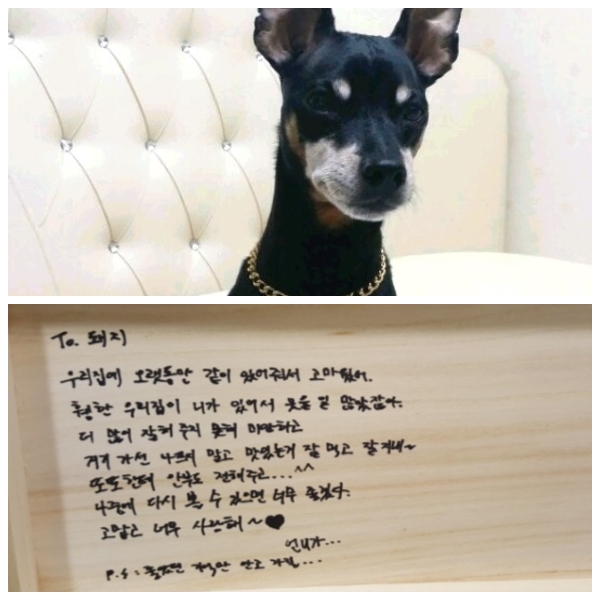 To. 돼지
우리집에 오랫동안 같이 있어줘서 고마웠어.
휑한 우리집이 니가 있어서 웃을 일 많았잖아.
더 많이 잘해 주지 못해 미안하고
거기 가선 아프지 말고 맛있는거 잘 먹고 잘지내~
또또한테 안부도 전해주고...^^
나중에 다시 볼 수 있으면 너무 좋겠다.
고맙고 너무 사랑해~♥
언니가...
P.S: 기억만 안고 가길...